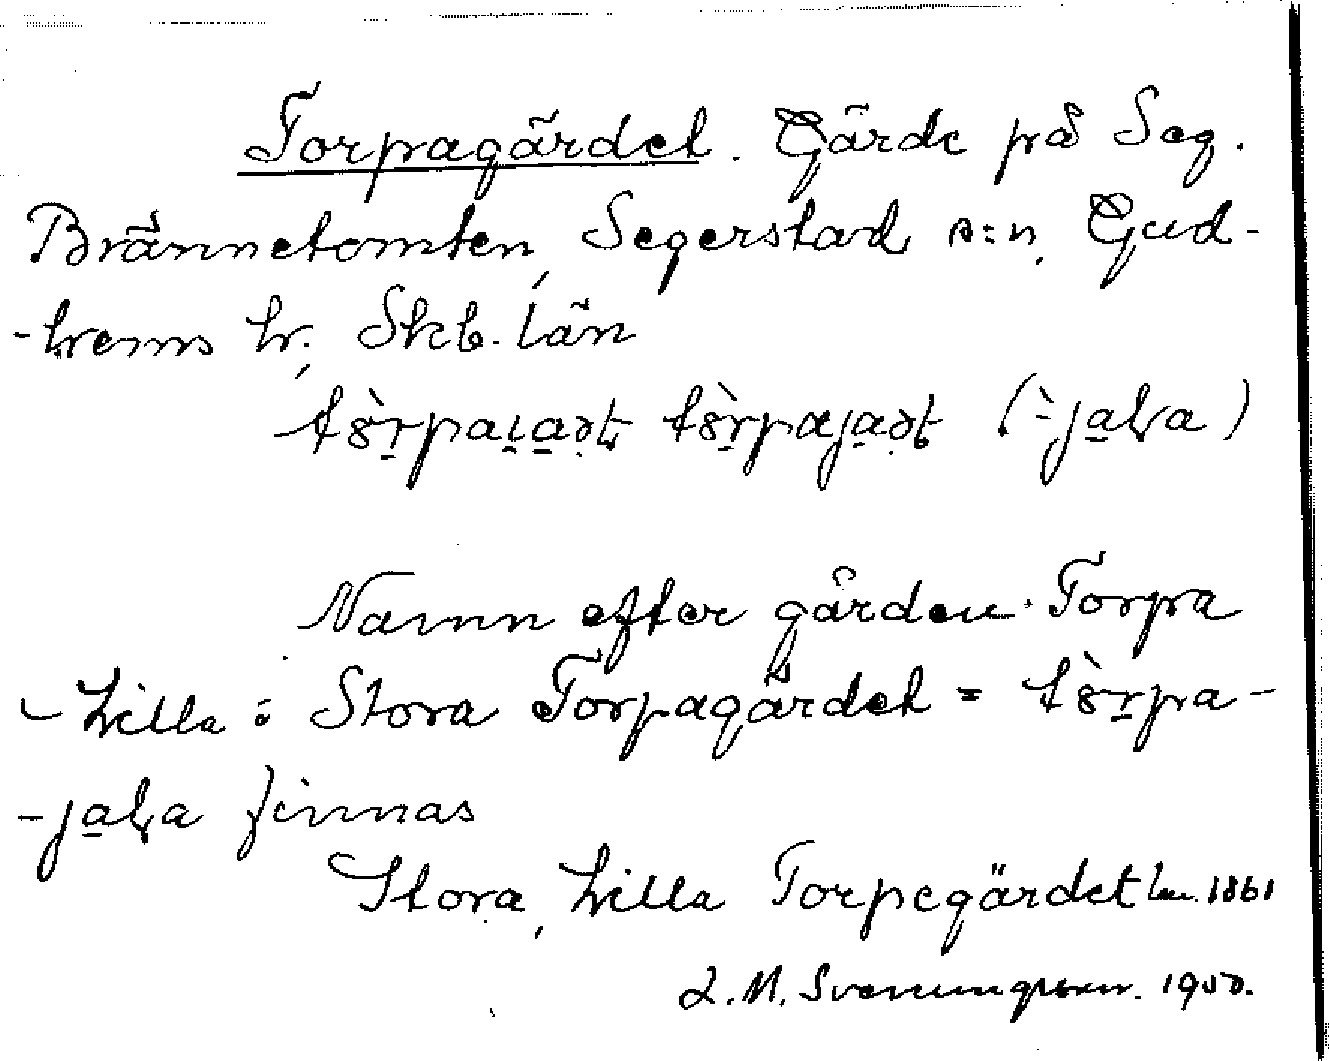 Torpagärdet. Gärde på Seg.
Brännetomten, Segerstad s:n, Gud-
-hems hr., Skb. län
tȣ̀r̠paɩ̠a̠ət, tȣ̀r̠paja̠ət (-̀ja̠ɫa)
Namn efter gården Torpa
- Lilla o Stora Torpagärdet = tȣ̀r̠pa-
-ja̠ɫa finnas
Stora, Lilla Torpegärdet lm. 1861
L.M. Svenungsson. 1950.